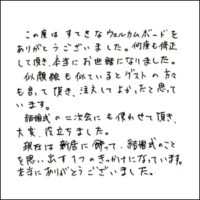 この度は すてきなウェルカムボードを
ありがとうございました。何度も修正
して頂き、本当にお世話になりました。
似顔絵も似ているとゲストの方々
も言って頂き、注文してよかったと思って
います。
結婚式の二次会にも使わせて頂き、
大変、役立ちました。
現在は新居に飾って、結婚式のこと
を思い出す1つのきっかけになっています。
本当にありがとうございました。